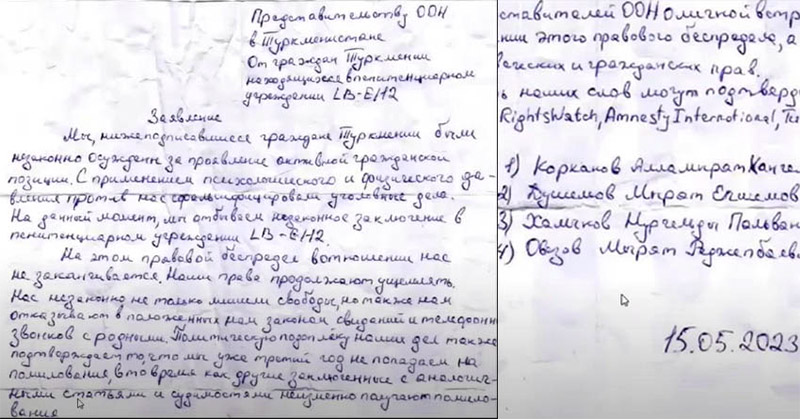 Представительству ООН
в Туркменистане
От граждан Туркмении
находящихся в пенитенциарном
учреждении LB-E/12
Заявление
Мы, нижеподписавшиеся граждане Туркмении были
незаконно осуждены за проявление активной гражданской
позиции. С применением психологического и физического да-
вления против нас сфальсифицировали уголовные дела.
На данный момент, мы отбываем незаконное заключение в
пенитенциарном учреждении LB-E/12.
На этом правовой беспредел в отношении нас
не заканчивается. Наши права продолжают ущемлять.
Нас незаконно не только лишили свободы, но также нам
отказывают в положенных нам законом свиданий и телефонн
звонков с родными. Политическую подоплёку наших дел также
подтверждает то, что мы уже третий год не попадаем на
помилования, в то время как другие заключенные с аналогич-
ными статьями и судимостями неизменно получают помило-
вание
ставителей ООН о личной встр
нии этого правового беспредела, а
ческих и гражданских прав.
ь наших слов могут подтверд
RightsWatch, Amnesty International, Tu
1) Корканов Алламират
2) Душемов Мырат
3) Халыков Нургелды Пальван
4) Овезов Мырат Реджепбаев
15.05.2023